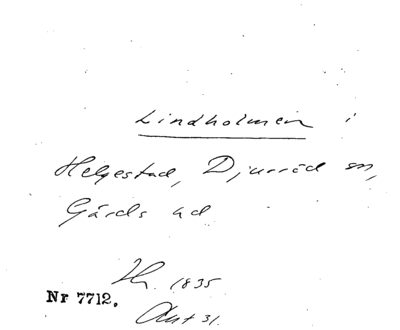 Lindholmen i
Helgestad, Djurröd sn,
Gärds hd
1835
Nr 7712.
Ant 31.